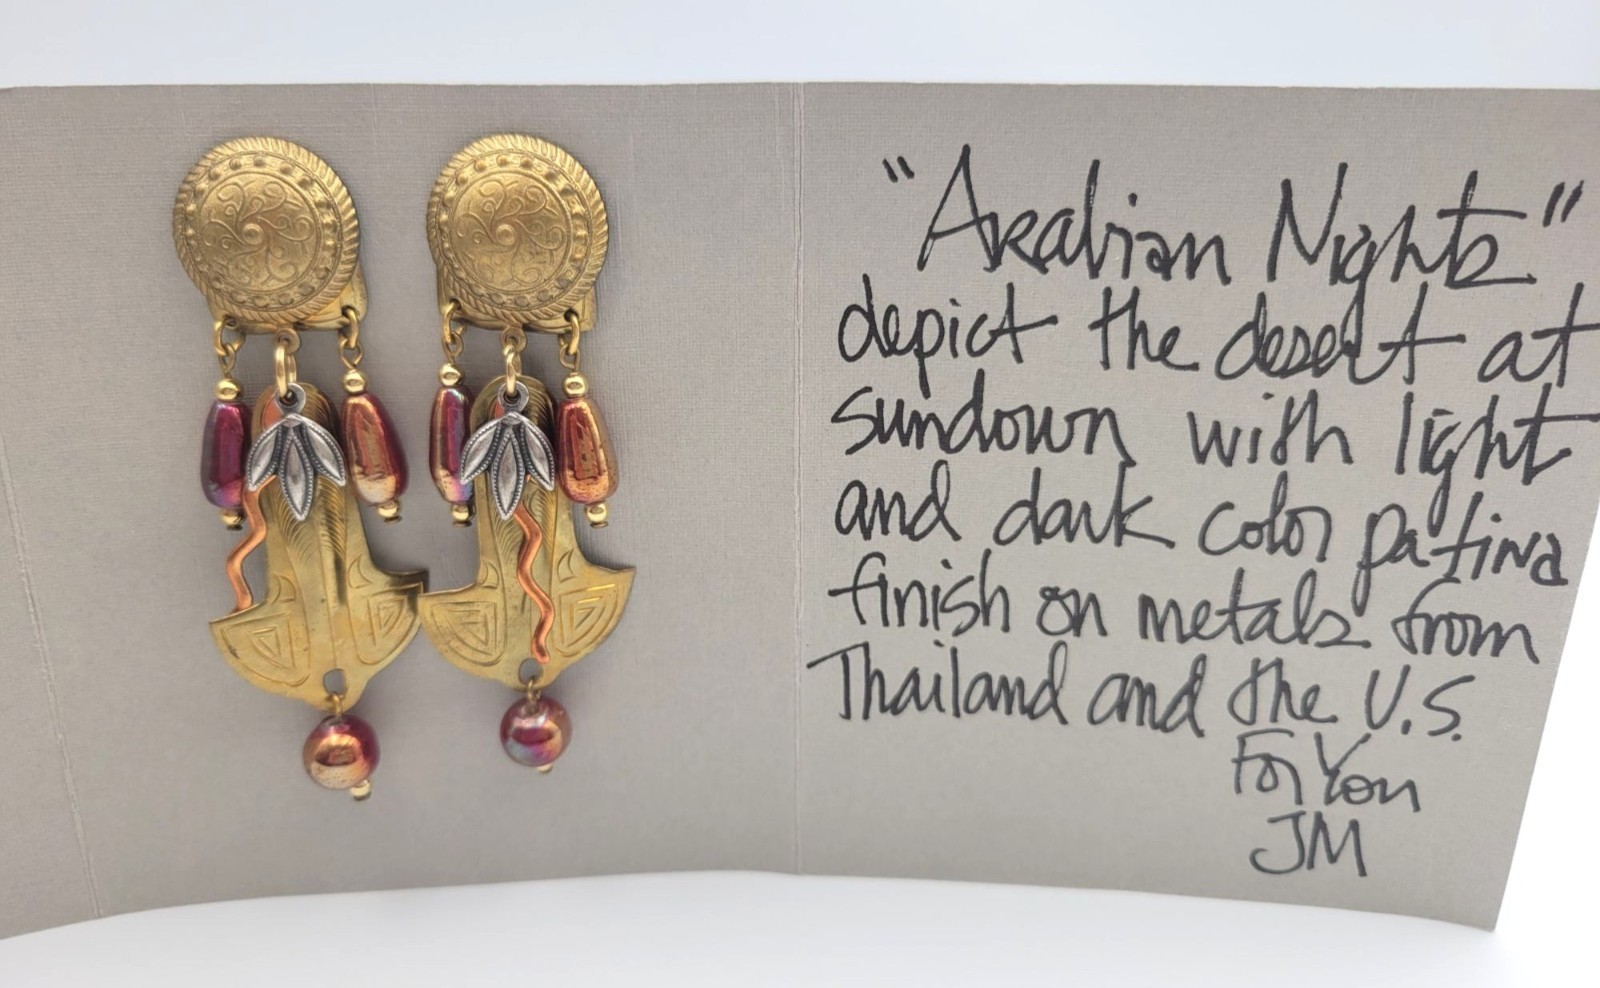 "Arabian Nights"
depict the desert at
sundown with light
and dark color patina
finish on metals from
Thailand and the U.S.
For You
JM